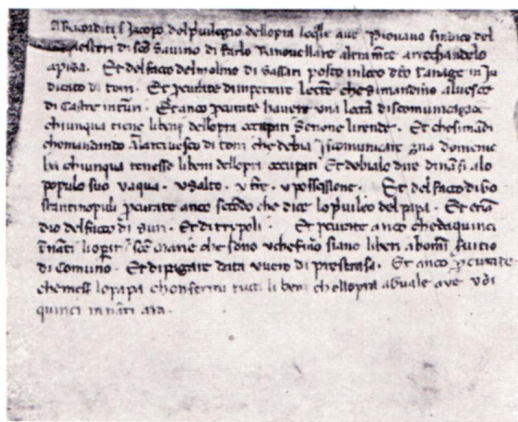 A Ricorditi s Jacopo del pvilegio dellopra loqle ave Piovano sindico del
di sco Savino di farlo Rinovellare altramte arrechandelo
apisa. Et del facto del molino di Sassari posto inloco dcto sanage in Ju
dicato di torri. Et pcurate dimpetrare lectre che simandino alvesco
di Castre Et anco pcurate havere una lectra di scomunicagione
chiunqua tiene libeni dellopra occupati senone lirende. Et che simandi
chemandino alarcivesco di torri che debia iscomunicare ogna domene
cha chiunqua tenesse libeni dellopra occupati Et debiale dire dinansi alo
populo suo vaqua. vsalto. v fre. v possessione. Et del facto di Go
stantinopuli pcurate anco secodo che dice lo pvileo del papa. Et etia
dio del facto di Suri. Et di tripoli. Et pcurate anco che daquinci
innati liopari sce Marie che sono vchefino siano liberi abomni servitio
di Comuno. Et di pigare data vvero di prestansa. Et anco pcurate
chemess lopapa chonfermi tucti li beni chellopra abuale ave vdi
quinci innati ara.